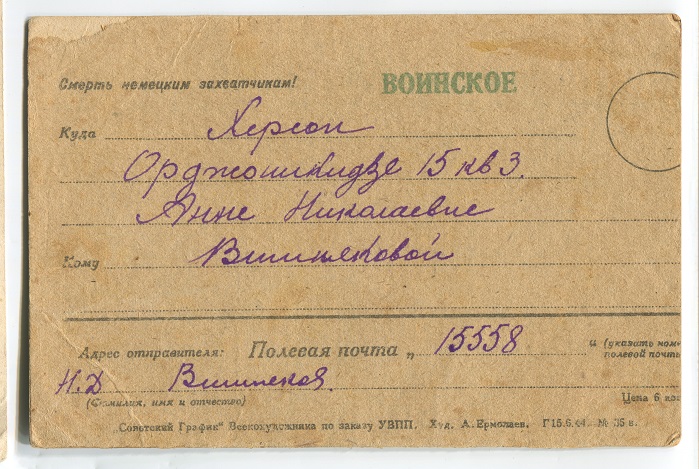 Смерть немецким захватчикам! ВОИНСКОЕ
Куда Херсон
Орджоникидзе 15 кв 3.
Анне Николаевне
Кому Вишняковой
Адрес отправителя: Полевая почта „ 15558 и (указать ном-
полевой почты
Н.Д Вишняков.
(Фамилия, имя и отчество) Цена 6 коп
„Советский График" Всекохудожника по заказу УВПП. Худ. А. Ермолаев. Г15.6.44. № 35 в.